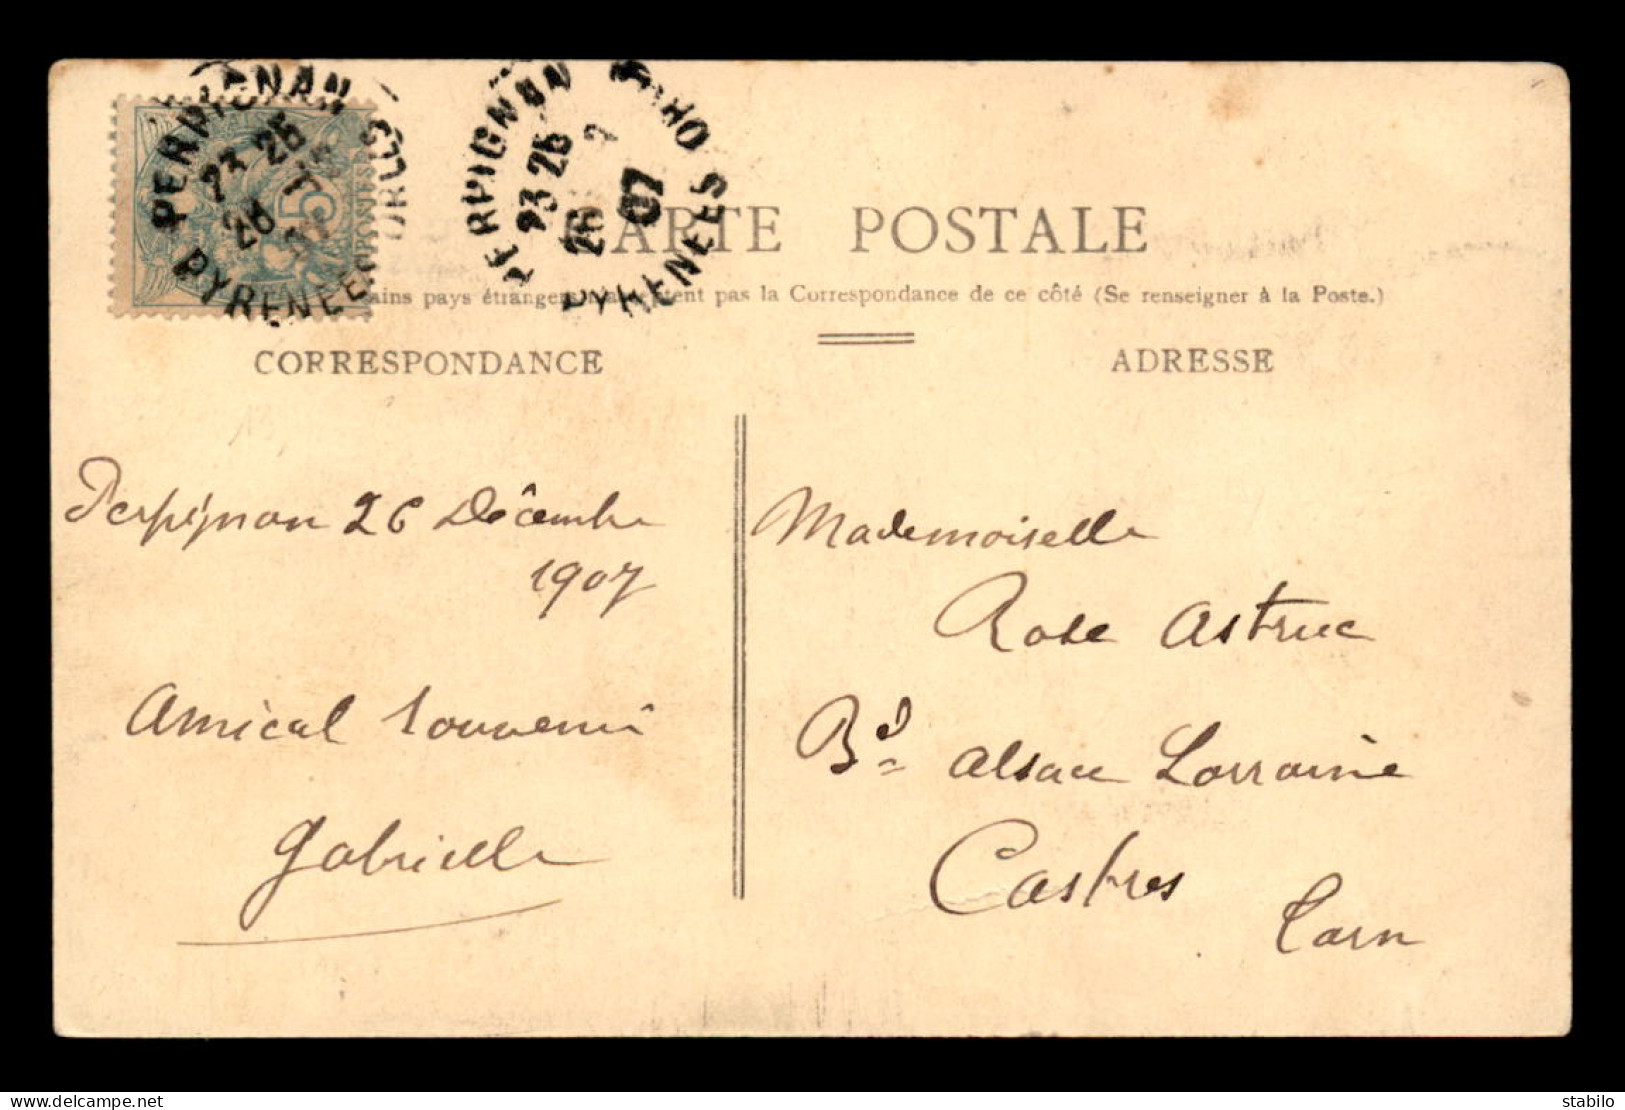 PERPIGNAN
23 25
26
PYRENEES
5
POSTES
PERPIGNAN
23 25
26
07
PYRENEES
CARTE POSTALE
pays étrangers pas la Correspondance de ce côté (Se renseigner à la Poste.)
CORRESPONDANCE
ADRESSE
Perpignan 26 Décembre
1907
Amical souvenir
Gabrielle
Mademoiselle
Rose Astruc
Bd Alsace Lorraine
Castres
Tarn
www.delcampe.net
stabilo